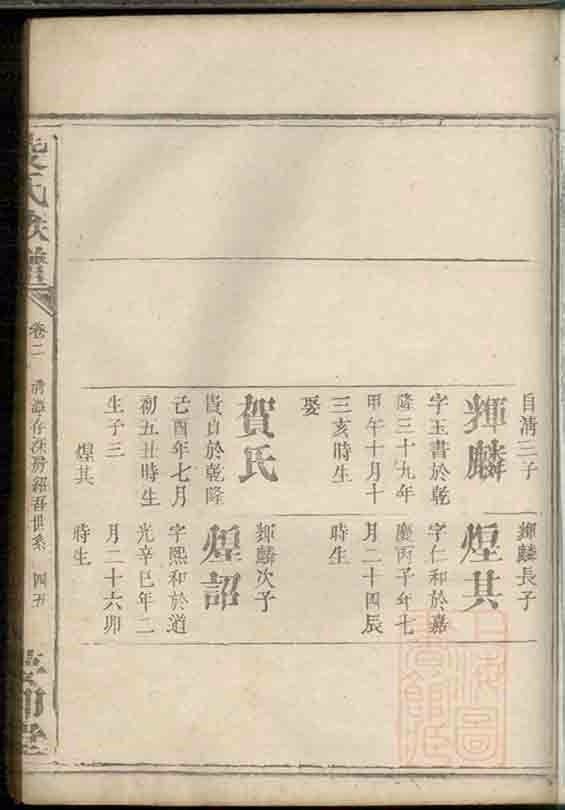 自清三子
輝麟
字玉書於乾
隆三十九年
甲午十月十
三亥時生
娶
賀氏
貴貞於乾隆
己酉年七月
初五丑時生
生子三
煌其
輝麟長子
煌其
字仁和於嘉
慶丙子年七
月二十四辰
時生
輝麟次子
煌詔
字熙和於道
光辛巳年二
月二十六卯
時生
氏族譜
卷二
房紹吾世系
四五
上海圖
書館藏